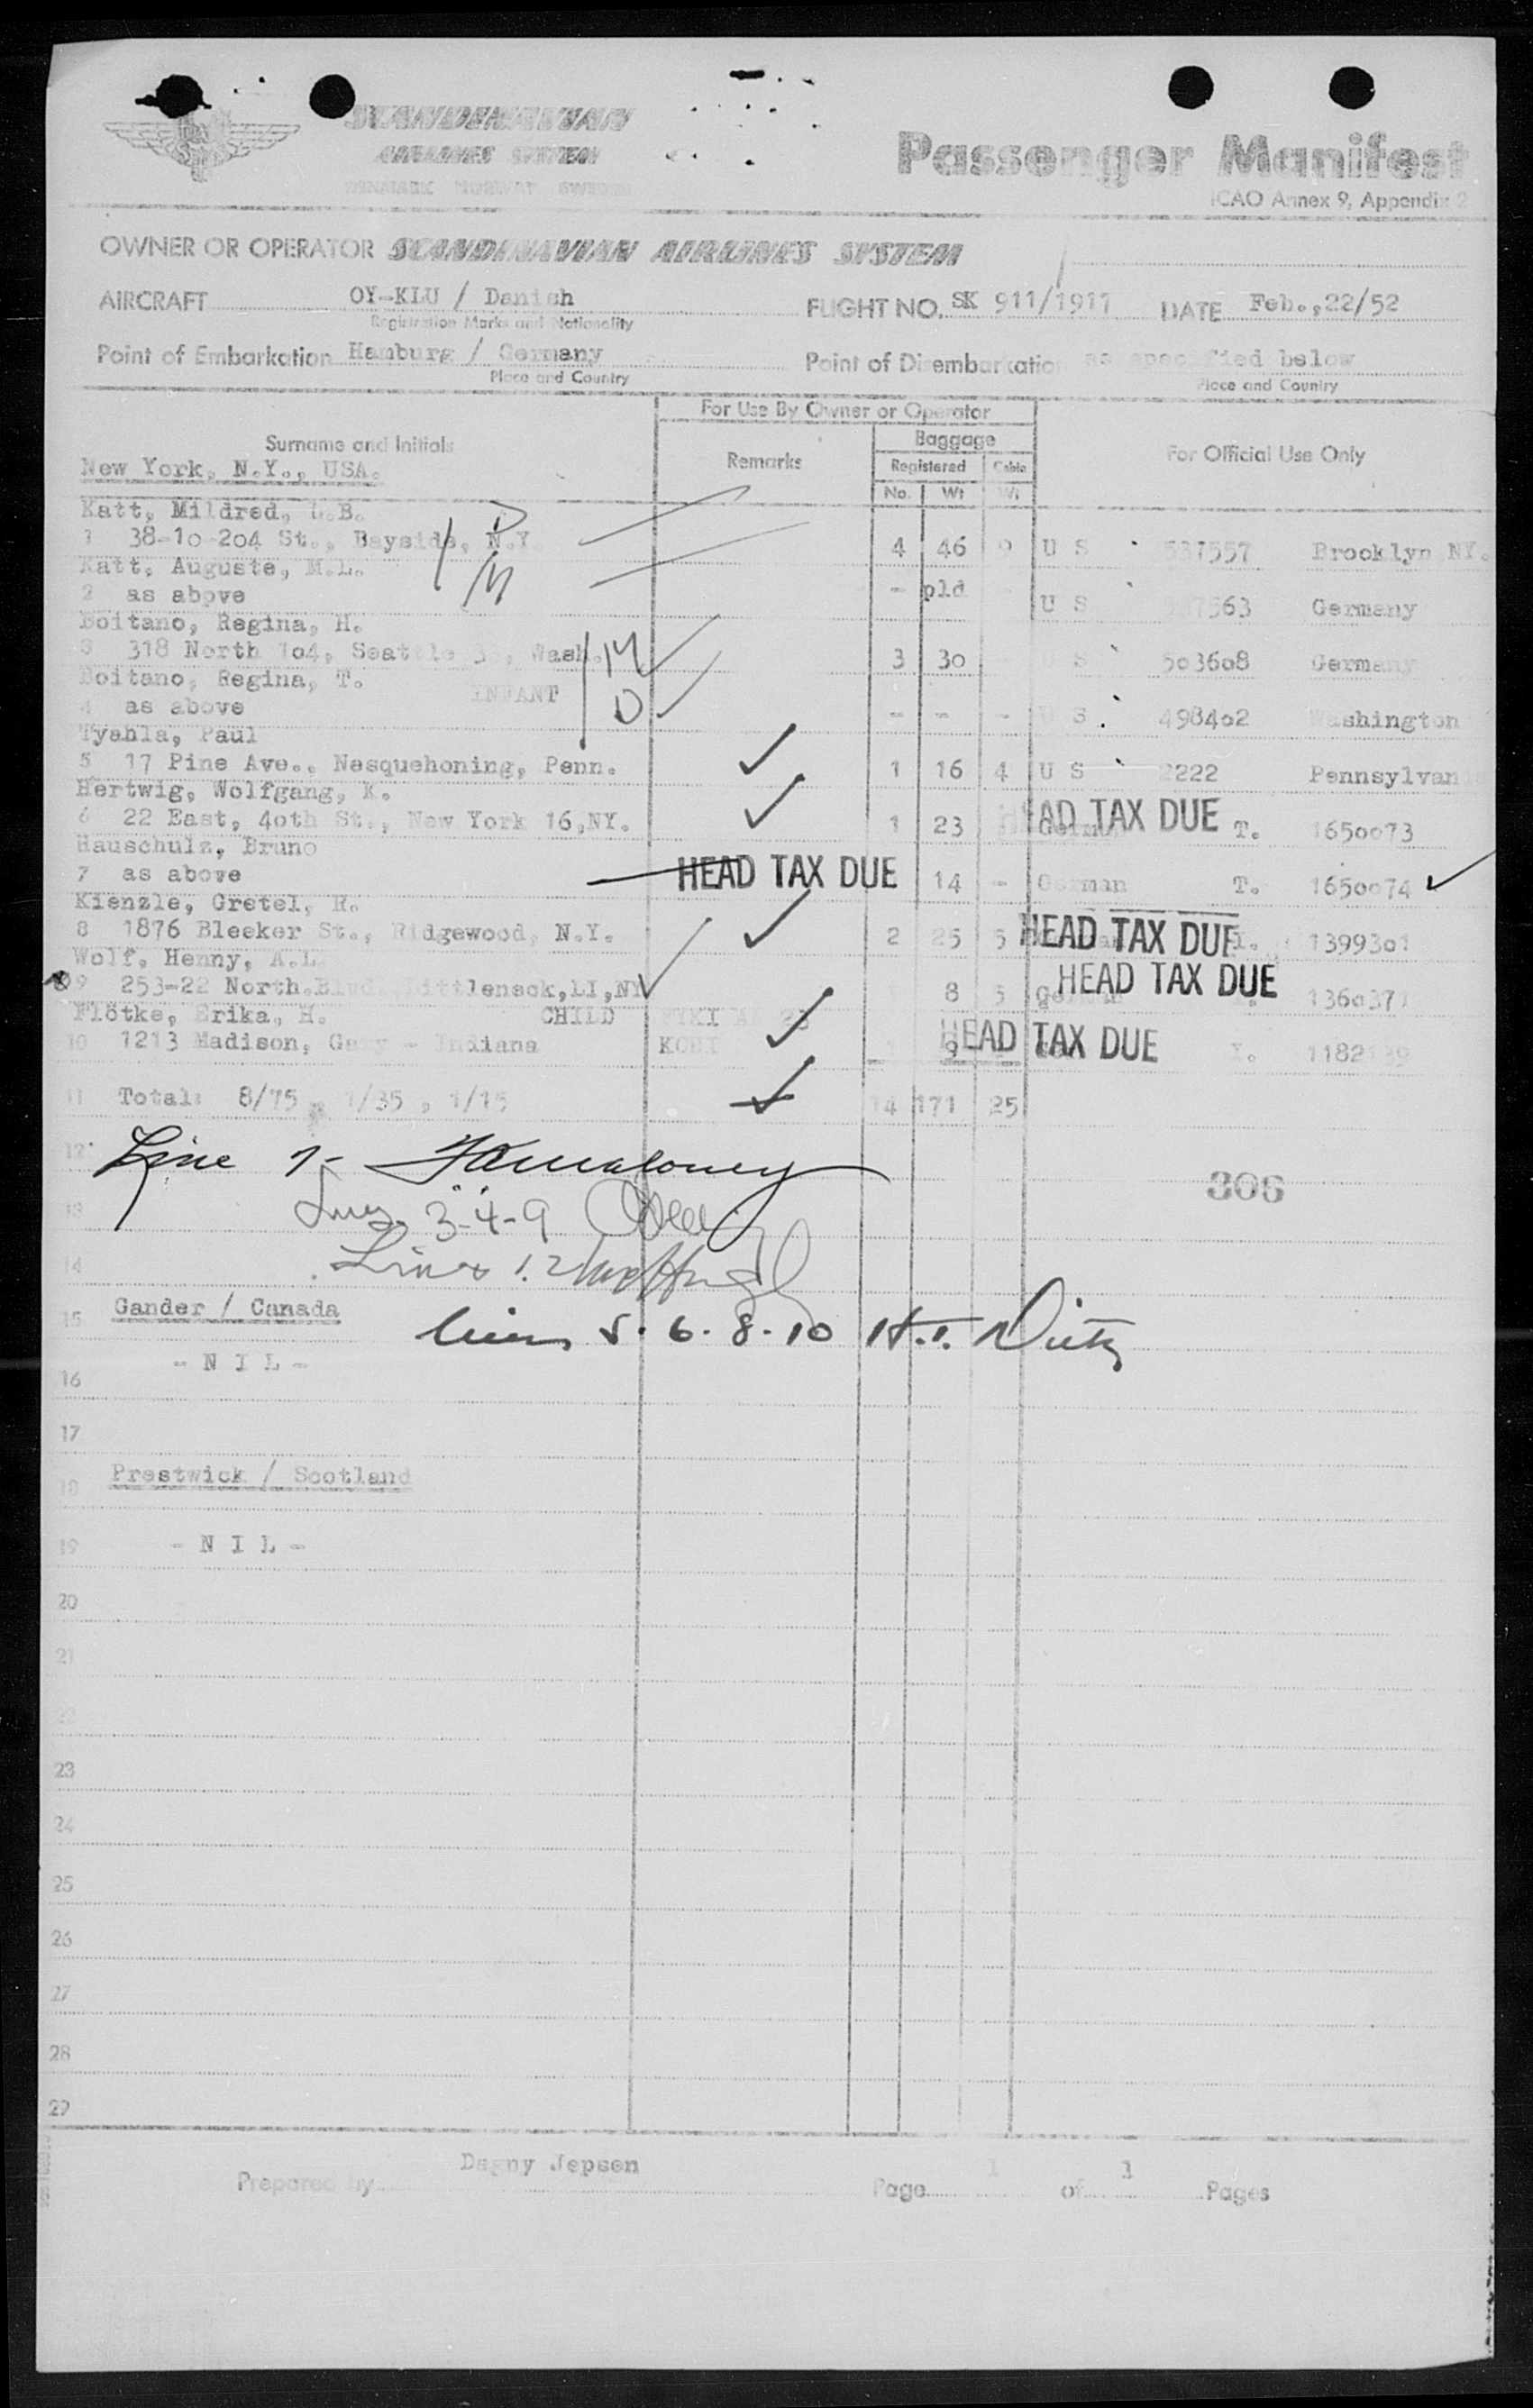 SCANDINAVIAN
AIRLINES SYSTEM
DENMARK NORWAY SWEDEN
Passenger Manifest
ICAO Annex 9, Appendix 2
OWNER OR OPERATOR SCANDINAVIAN AIRLINES SYSTEM
AIRCRAFT OY-KLU / Danish FLIGHT NO. SK 911/1911 DATE Feb.,22/52
Registration Marks and Nationality
Point of Embarkation Hamburg / Germany Point of Disembarkation as specified below
Place and Country Place and Country
For Use By Owner or Operator
Surname and Initials Remarks Baggage For Official Use Only
Registered Cabin
No. Wt Wt
New York, N.Y., USA.
Katt, Mildred, L.B.
1 38-10-204 St., Bayside, N.Y. 4 46 9 U S 537557 Brooklyn NY.
Katt, Auguste, M.L.
2 as above - pld - U S 7563 Germany
Boitano, Regina, H.
3 318 North 104, Seattle 33, Wash. 3 30 U S 503608 Germany
Boitano, Regina, T. INFANT
4 as above - - - U S 498402 Washington
Tyahla, Paul
5 17 Pine Ave., Nesquehoning, Penn. 1 16 4 U S 2222 Pennsylvan
Hertwig, Wolfgang, K.
6 22 East, 40th St., New York 16,NY. 1 23 HEAD TAX DUE German T. 1650073
Hauschulz, Bruno
7 as above HEAD TAX DUE 14 - German T. 1650074
Kienzle, Gretel, R.
8 1876 Bleeker St., Ridgewood, N.Y. 2 25 5 HEAD TAX DUE 1399301
Wolf, Henny, A.L.
9 253-22 North.Blvd. Littleneck,LI,NY 8 5 German HEAD TAX DUE 136037
Flötke, Erika, H. CHILD
10 1213 Madison, Gary - Indiana 9 HEAD TAX DUE 1182
11 Total: 8/75 , 1/35 , 1/15 14 171 25
12 Line 7-
306
13 3-4-9
14 Lines 1.2
15 Gander / Canada
Lines 5. 6. 8. 10 H.T.
- N I L -
16
17
18 Prestwick / Scotland
19 - N I L -
20
21
22
23
24
25
26
27
28
29
Prepared by Dagny Jepsen Page 1 of 1 Pages